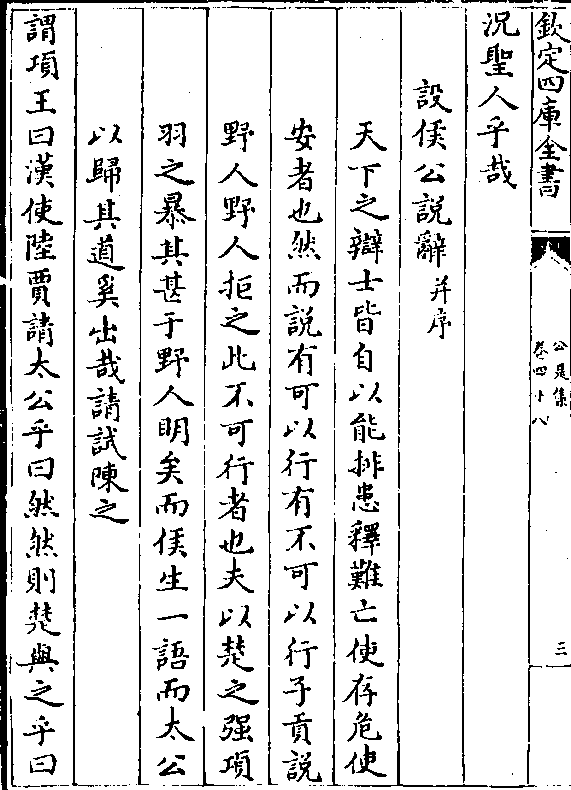 欽定四庫全書
公是集
卷四十八
三
況聖人乎哉
設侯公說辭并序
天下之辯士皆自以能排患釋難亡使存危使
安者也然而說有可以行有不可以行子貢說
野人野人拒之此不可行者也夫以楚之强項
羽之暴其甚于野人明矣而侯生一語而太公
以歸其道奚出哉請試陳之
謂項王曰漢使陸賈請太公乎曰然然則楚與之乎曰